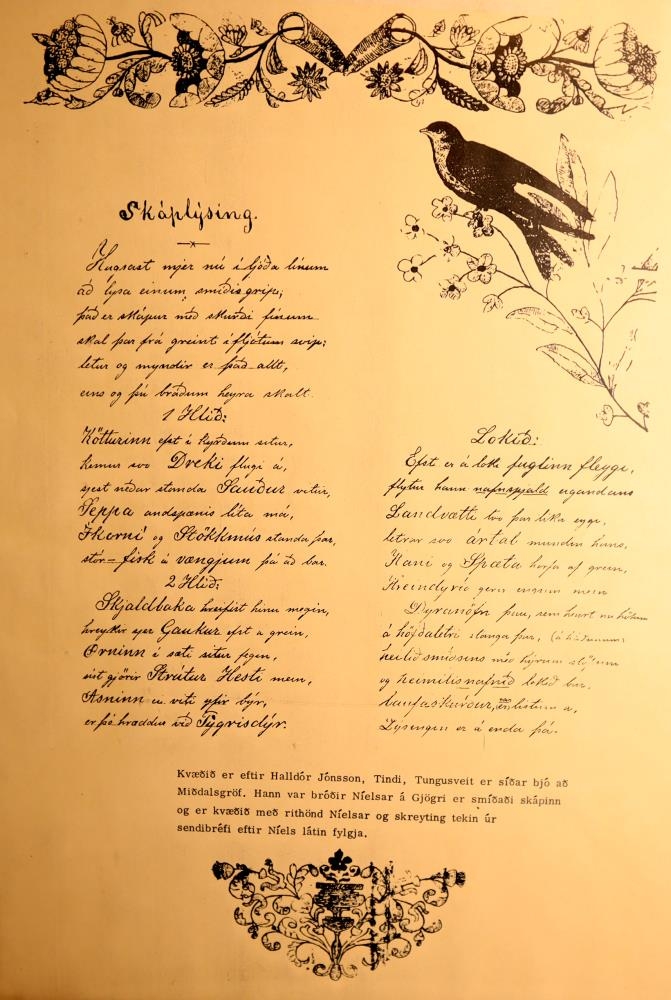 Skáplýsing.
Hugsast mjer nú í ljóða línum
að lýsa einum smíðisgrip;
það er skápur með skurði fínum
skal þar frá greint í fljótum svip;
letur og myndir er það allt,
eins og þú bráðum heyra skalt.
1 Hlið:
Kötturinn efst í situr,
kemur svo Dreki flugi á,
sjest neðar standa Sauður vitur,
Seppa andspænis líta má,
Íkorni og Stökkmús standa þar,
stór-fisk á vængjum þá að bar.
2 Hlið:
Skjaldbaka hreifist hinu megin,
hreykir sjer Gaukur efst a grein,
Örninn í sæti situr feginn,
síst gjörir Strútur Hesti mein,
Asninn ei viti yfir býr,
er þó hræddur við Týgrisdýr.
Lokið:
Efst er á loki fuglinn fleygi,
flytur hann nafnspjald eigandans
Landvætti tvo þar líka eygi,
letrar svo ártal mundin hans,
Hani og Spæta horfa af grein,
Hreindýrið gera engum mein
Dýranöfn þau, sem
á höfðaletri þar, (á hliðunum)
með
og heimilisnafnið lokið bar.
laufaskurður,
Lýsingin er á enda þá.
Kvæðið er eftir Halldór Jónsson, Tindi, Tungusveit er síðar bjó að
Miðdalsgröf. Hann var bróðir Níelsar á Gjögri er smíðaði skápinn
og er kvæðið með rithönd Níelsar og skreyting tekin úr
sendibréfi eftir Níels látin fylgja.